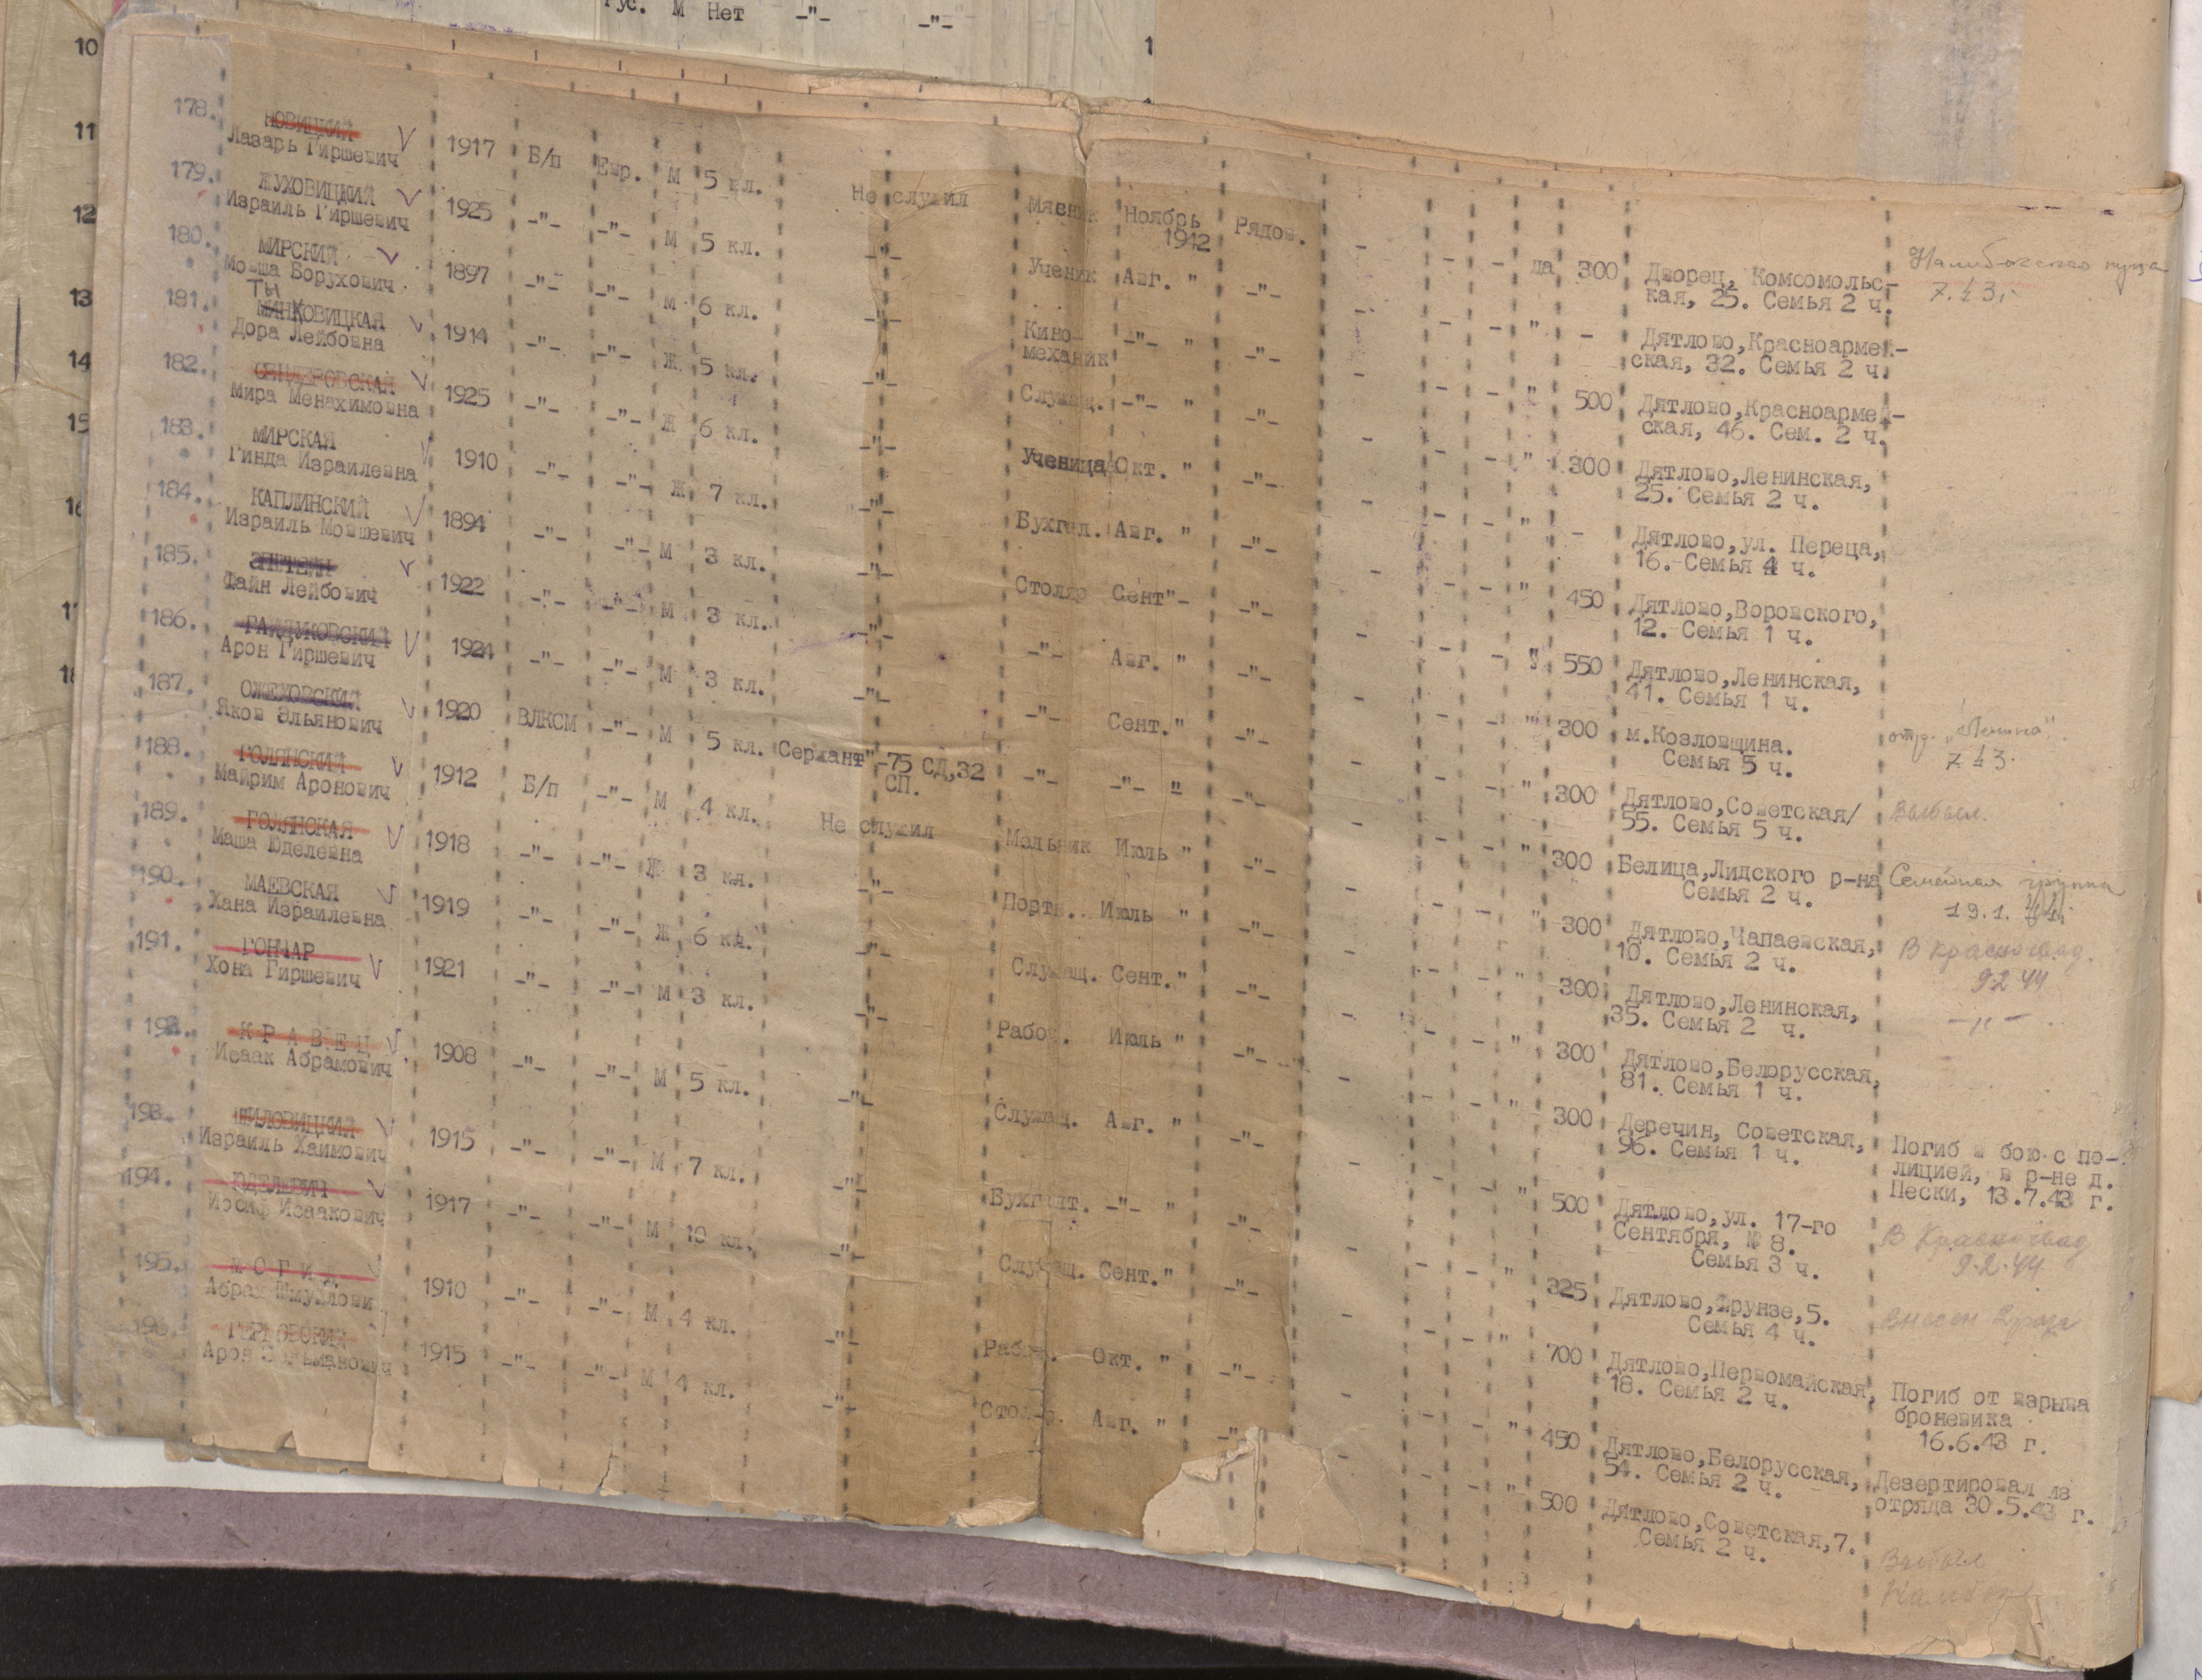 Рус. М Нет -"- -"-
10 1
11
12
13
14
15
178. НОВИЦКИЙ
Лазарь Гиршевич 1917 Б/п Евр. М 5 кл. Не служил Мясник Ноябрь 1942 Рядов. - - - да 300 Дворец, Комсомольс-
кая, 25. Семья 2 ч.
7.43 г.
179. ЖУХОВИЦКИЙ
Израиль Гиршевич 1925 -"- -"- М 5 кл. -"- Ученик Авг. " -"- - - - " - Дятлово,Красноармей-
ская, 32. Семья 2 ч.
180. МИРСКИЙ
Мовша Борухович 1897 -"- -"- М 6 кл. -"- Кино-
механик -"- " -"- - - - " 500 Дятлово,Красноармей-
ская, 46. Сем. 2 ч.
ТЫ
181. МИНКОВИЦКАЯ
Дора Лейбовна 1914 -"- -"- Ж 5 кл. -"- Служащ. -"- " -"- - - - " 300 Дятлово,Ленинская,
25. Семья 2 ч.
182. СЕНДЕРОВСКАЯ
Мира Менахимовна 1925 -"- -"- Ж 6 кл. -"- Ученица Окт. " -"- - - - " - Дятлово,ул. Переца,
16. Семья 4 ч.
183. МИРСКАЯ
Гинда Израилевна 1910 -"- -"- Ж 7 кл. -"- Бухгал. Авг. " -"- - - - " 450 Дятлово,Воровского,
12. Семья 1 ч.
184. КАПЛИНСКИЙ
Израиль Мовшевич 1894 -"- -"- М 3 кл. -"- Столяр Сент"- -"- - - - " 550 Дятлово,Ленинская,
41. Семья 1 ч.
185.
Файн Лейбович 1922 -"- -"- М 3 кл. -"- -"- Авг. " -"- - - - " 300 м.Козловщина.
Семья 5 ч.
отр. „Ленина".
7.43.
186. ГАЙДУКОВСКИЙ
Арон Гиршевич 1924 -"- -"- М 3 кл. -"- -"- Сент." -"- - - - " 300 Дятлово,Советская/
55. Семья 5 ч.
Выбыл.
187. ОЖЕХОВСКИЙ
Яков Эльянович 1920 ВЛКСМ -"- М 5 кл. Сержант"-75 СД,32
СП. -"- -"- " -"- - - - " 300 Белица,Лидского р-на
Семья 2 ч.
Семейная группа
19.1.44г.
188. ГОЛЯНСКИЙ
Майрим Аронович 1912 Б/п -"- М 4 кл. Не служил Мельник Июль " -"- - - - " 300 Дятлово,Чапаевская,
10. Семья 2 ч.
В Красногвад.
9.2.44
189. ГОЛЯНСКАЯ
Маша Юделевна 1918 -"- -"- Ж 3 кл. -"- Портн. Июль " -"- - - - " 300 Дятлово,Ленинская,
35. Семья 2 ч.
-"-
190. МАЕВСКАЯ
Хана Израилевна 1919 -"- -"- Ж 6 кл. -"- Служащ. Сент." -"- - - - " 300 Дятлово,Белорусская,
81. Семья 1 ч.
191. ГОНЧАР
Хона Гиршевич 1921 -"- -"- М 3 кл. -"- Рабоч. Июль " -"- - - - " 300 Деречин, Советская,
96. Семья 1 ч.
Погиб в бою с по-
лицией, в р-не д.
Пески, 13.7.43 г.
192. КРАВЕЦ
Исаак Абрамович 1908 -"- -"- М 5 кл. -"- Служащ. Авг. " -"- - - - " 500 Дятлово,ул. 17-го
Сентября, № 8.
Семья 3 ч.
В Красногвад
9.2.44
193. ШИЛОВИЦКИЙ
Израиль Хаимович 1915 -"- -"- М 7 кл. -"- Бухгалт. -"- " -"- - - - " 325 Дятлово,Фрунзе,5.
Семья 4 ч.
194. ЮДЕЛЕВИЧ
Иосиф Исаакович 1917 -"- -"- М 10 кл. -"- Служащ. Сент." -"- - - - " 700 Дятлово,Первомайская,
18. Семья 2 ч.
Погиб от взрыва
броневика
16.6.43 г.
195. МОГИЛ
Абрам Шмуйлови 1910 -"- -"- М 4 кл. -"- Рабоч. Окт. " -"- - - - " 450 Дятлово,Белорусская,
54. Семья 2 ч.
Дезертировал из
отряда 30.5.43 г.
196.
Арон Зельманович 1915 -"- -"- М 4 кл. -"- Столяр. Авг. " -"- - - - " 500 Дятлово,Советская,7.
Семья 2 ч.
Выбыл